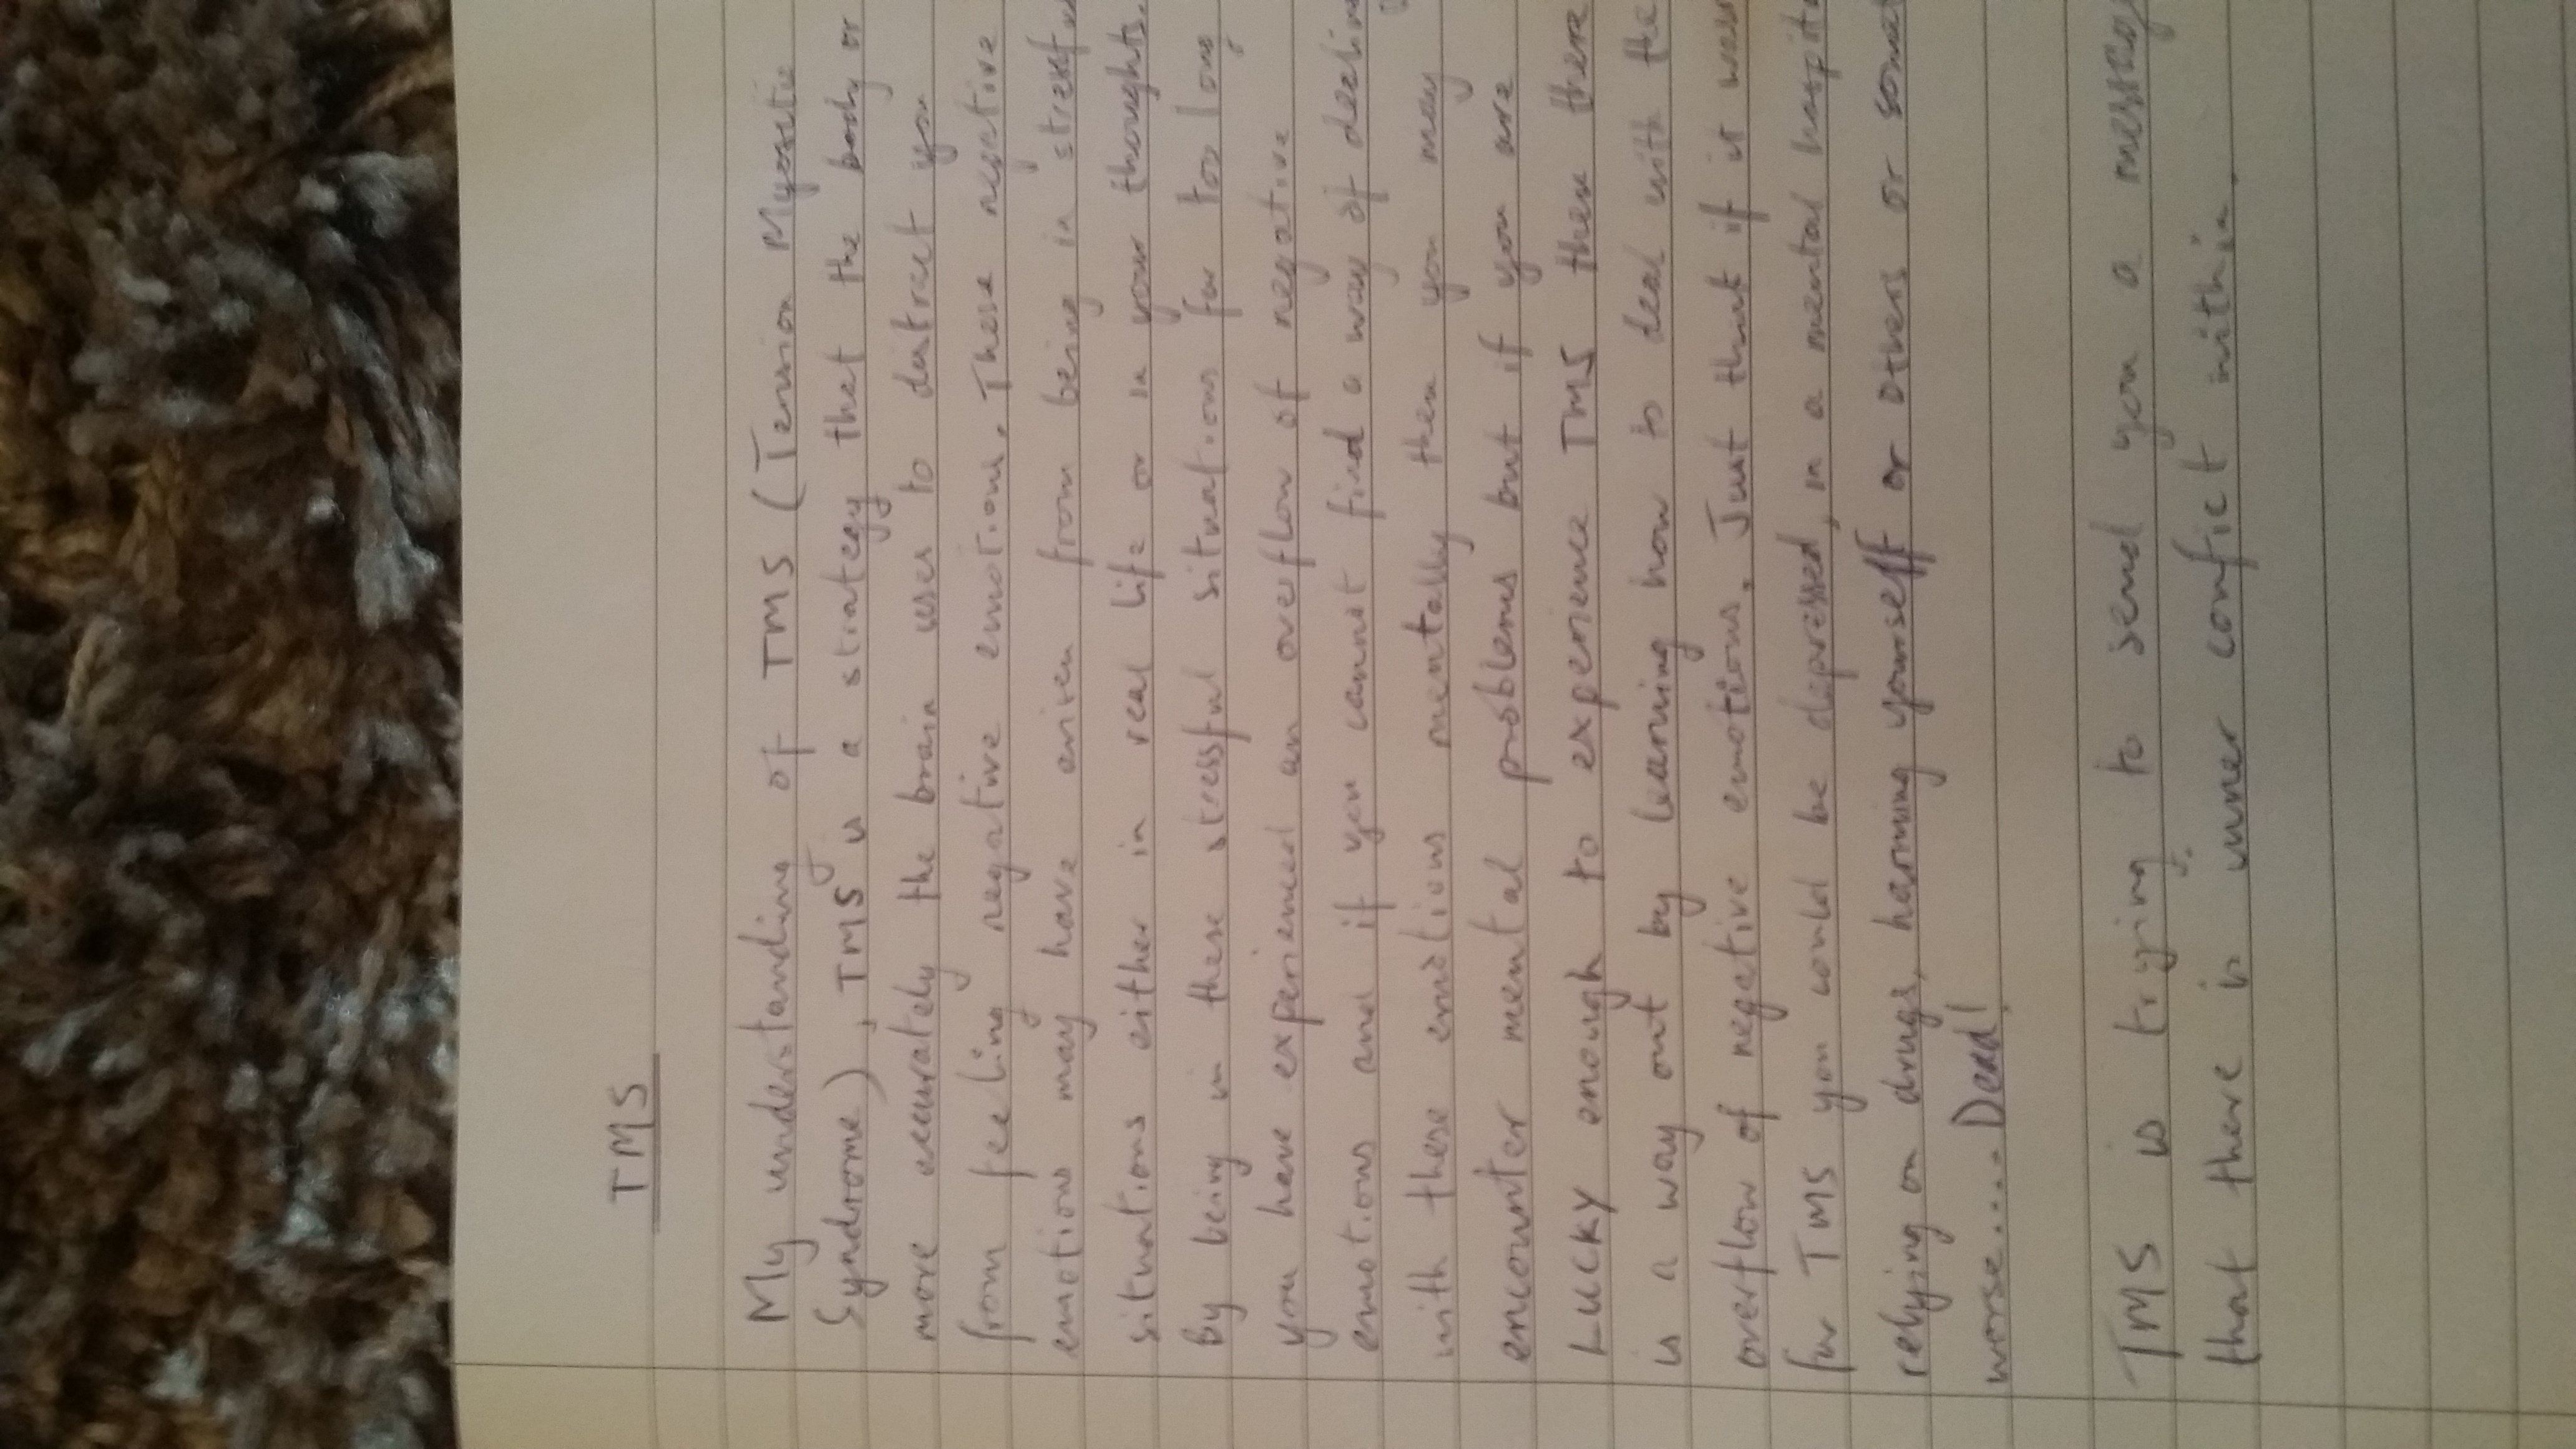 TMS
My understanding of TMS (Tension Myositis
Syndrome), TMS is a strategy that the body or
more accurately the brain uses to distract you
from feeling negative emotions. These negative
emotions may have arisen from being in
situations either in real life or in your thoughts.
By being in these stressful situations for too long,
you have experienced an overflow of negative
emotions and if you cannot find a way of
with these emotions mentally then you may
encounter mental problems but if you are
LUCKY enough to experience TMS then there
is a way out by learning how to deal with the
overflow of negative emotions. Just think if it
for TMS you could be depressed, in a mental
relying on drugs, harming yourself or others or
worse.... Dead!
TMS is trying to send you a
that there is inner confict within.